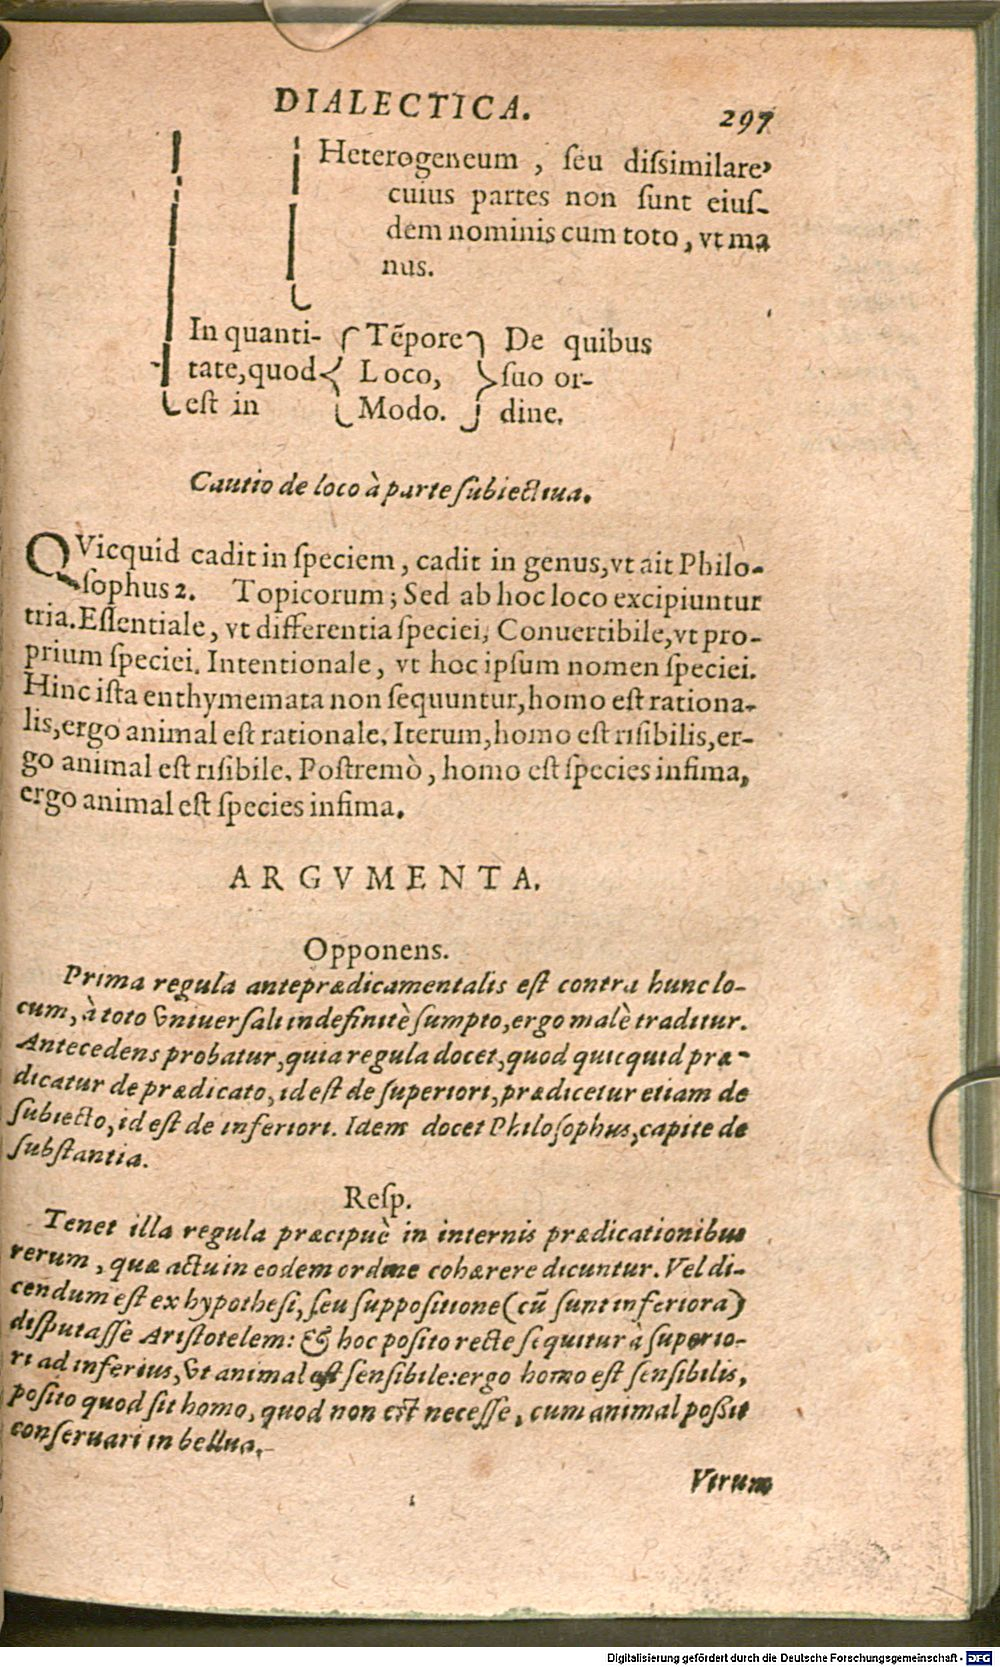 DIALECTICA. 297
Heterogeneum, ſeu disſimilare,
cuius partes non ſunt eiuſ-
dem nominis cum toto, vt ma
nus.
In quanti- Tẽpore De quibus
tate, quod Loco, ſuo or-
eſt in Modo. dine.
Cautio de loco à parte ſubiectiua.
QVicquid cadit in ſpeciem, cadit in genus, vt ait Philo-
ſophus 2. Topicorum; Sed ab hoc loco excipiuntur
tria. Eſſentiale, vt differentia ſpeciei; Conuertibile, vt pro-
prium ſpeciei. Intentionale, vt hoc ipſum nomen ſpeciei.
Hinc iſta enthymemata non ſequuntur, homo eſt rationa-
lis, ergo animal eſt rationale. Iterum, homo eſt riſibilis, er-
go animal eſt riſibile. Poſtremò, homo eſt ſpecies infima,
ergo animal eſt ſpecies infima.
ARGVMENTA.
Opponens.
Prima regula anteprædicamentalis eſt contra hunc lo-
cum, à toto vniuerſali indefinitè ſumpto, ergo malè traditur.
Antecedens probatur, quia regula docet, quod quicquid præ-
dicatur de prædicato, id eſt de ſuperiori, prædicetur etiam de
ſubiecto, id eſt de inferiori. Idem docet Philoſophus, capite de
ſubſtantia.
Reſp.
Tenet illa regula præcipuè in internis prædicationibus
rerum, quæ actu in eodem ordine cohærere dicuntur. Vel di-
cendum eſt ex hypotheſi, ſeu ſuppoſitione (cũ ſunt inferiora)
diſputaſſe Ariſtotelem: & hoc poſito recte ſequitur à ſuperio-
ri ad inferius, vt animal eſt ſenſibile: ergo homo eſt ſenſibilis,
poſito quod ſit homo, quod non eſt neceſſe, cum animal poßit
conſeruari in bellua.
Vtrum
Digitalisierung gefördert durch die Deutsche Forschungsgemeinschaft - DFG